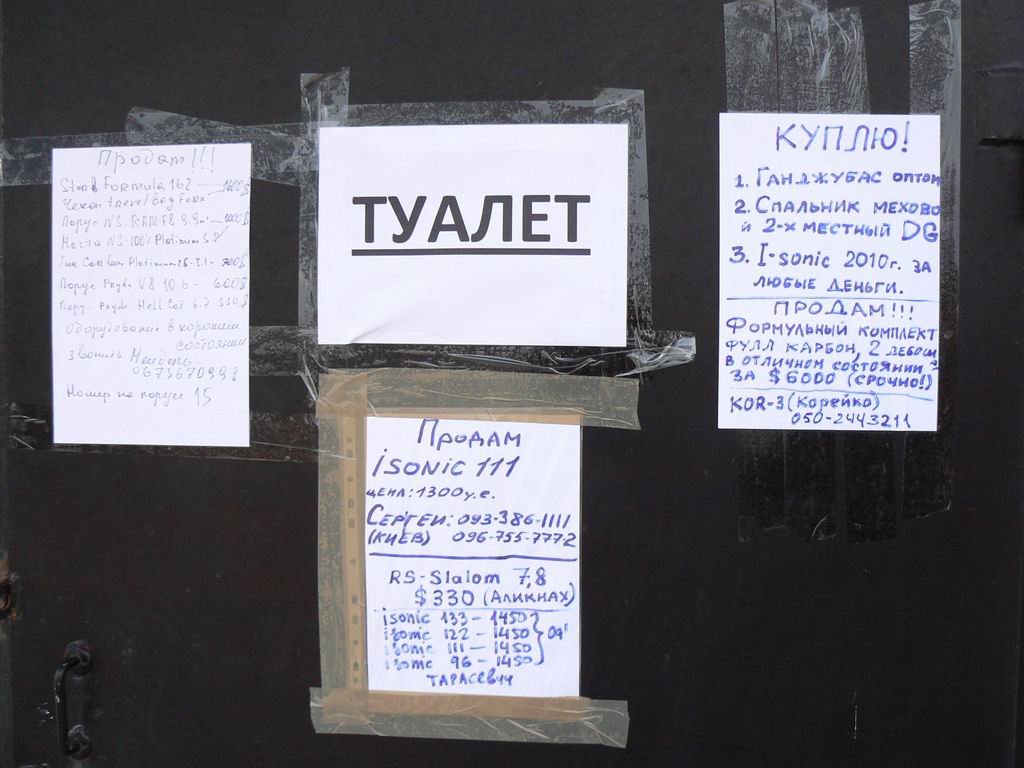 Продам!!!
Starb Formula 162 — 1600$
Чехол travel bag Forx
Парус NS RAM F8 9.9м² — 1000$
Мачта NS 100% Platinum 5.2
Гик Carbon Platinum 2.1 - 700$
Парус Pryde V8 10.6 - 600$
Пару Pryde Hell Cat 6.7 - 350$
Оборудование в хорошем
состоянии
звонить Мендель
0675670998
Номер на парусе 15
ТУАЛЕТ
Продам
iSONIC 111
ЦЕНА: 1300 у.е.
СЕРГЕЙ: 093-386-1111
(КИЕВ) 096-755-7772
RS-Slalom 7,8
$330 (АЛИКНАХ)
isonic 133 - 1450
isonic 122 - 1450 09'
isonic 111 - 1450
isonic 96 - 1450
ТАРАСЕВИЧ
КУПЛЮ!
1. ГАНДЖУБАС ОПТОМ
2. СПАЛЬНИК МЕХОВО
Й 2-Х МЕСТНЫЙ DG
3. I-sonic 2010г. ЗА
ЛЮБЫЕ ДЕНЬГИ.
ПРОДАМ!!!
ФОРМУЛЬНЫЙ КОМПЛЕКТ
ФУЛЛ КАРБОН, 2 ДЕБОШ
В ОТЛИЧНОМ СОСТОЯНИИ
ЗА $6000 (СРОЧНО!)
KOR-3 (Корейко)
050-2443211